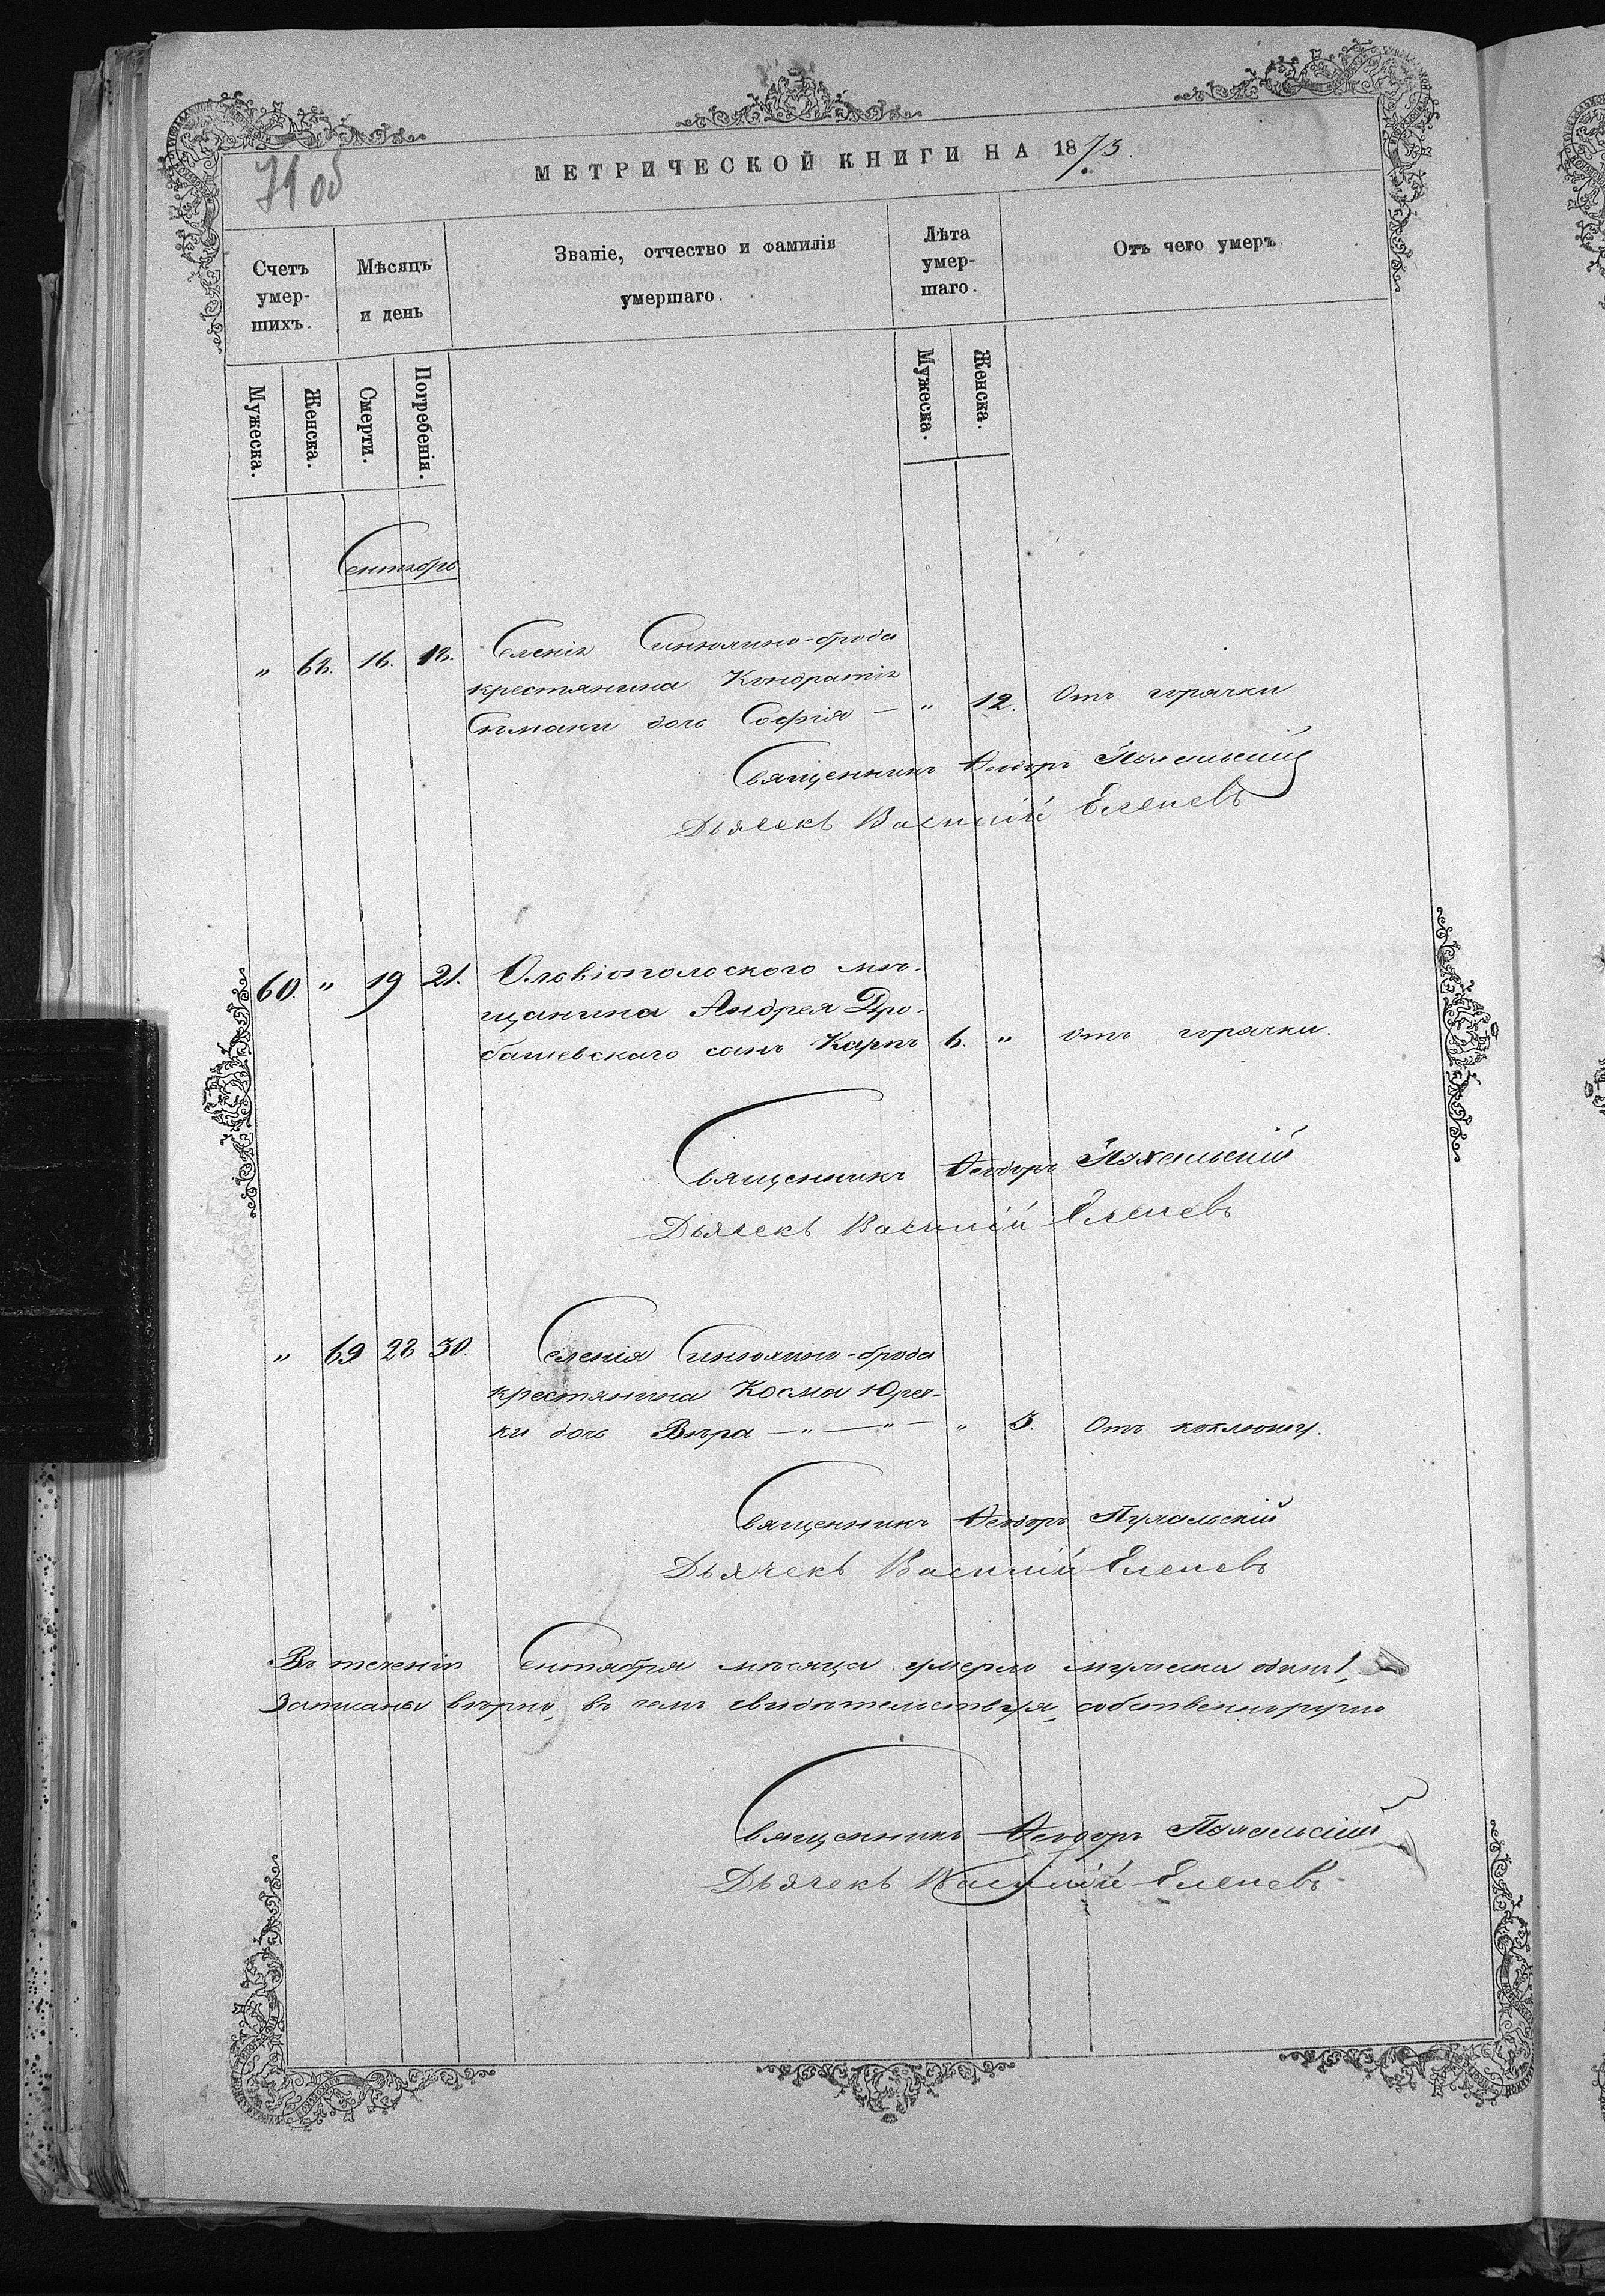 71 об
МЕТРИЧЕСКОЙ КНИГИ НА 1875.
Счетъ умершихъ.
Мѣсяцъ и день
Званіе, отчество и фамилія умершаго.
Лѣта умершаго.
Отъ чего умеръ
Мужеска.
Женска.
Смерти.
Погребенія.
Мужеска.
Женска.
Сентябрь
" 68. 16. 18. Селенія Синюхино-брода
крестянина Кондратія
дочь Софія — " 12. Отъ горячки
Священникъ Ѳеодоръ
Дьячекъ Василій Елепевъ
60. " 19 21. Ольвіопольского мѣ-
щанина Андрея Дро-
башевскаго сынъ Карпъ 6. " отъ горячки.
Священникъ Ѳеодоръ
Дьячекъ Василій Елепевъ
" 69 28 30. Селенія Синюхино-брода
крестянина Косма Юрев-
ки дочь Вѣра — " — " — " 3. Отъ коклюшу.
Священникъ Ѳеодоръ
Дьячекъ Василій Елепевъ
Въ теченіи Сентября мѣсяца умерло мужеска одинъ 1,
Записаны вѣрно, въ чемъ свидѣтельствуя, собственноручно
Священникъ Ѳеодоръ
Дьячекъ Василій Елепевъ